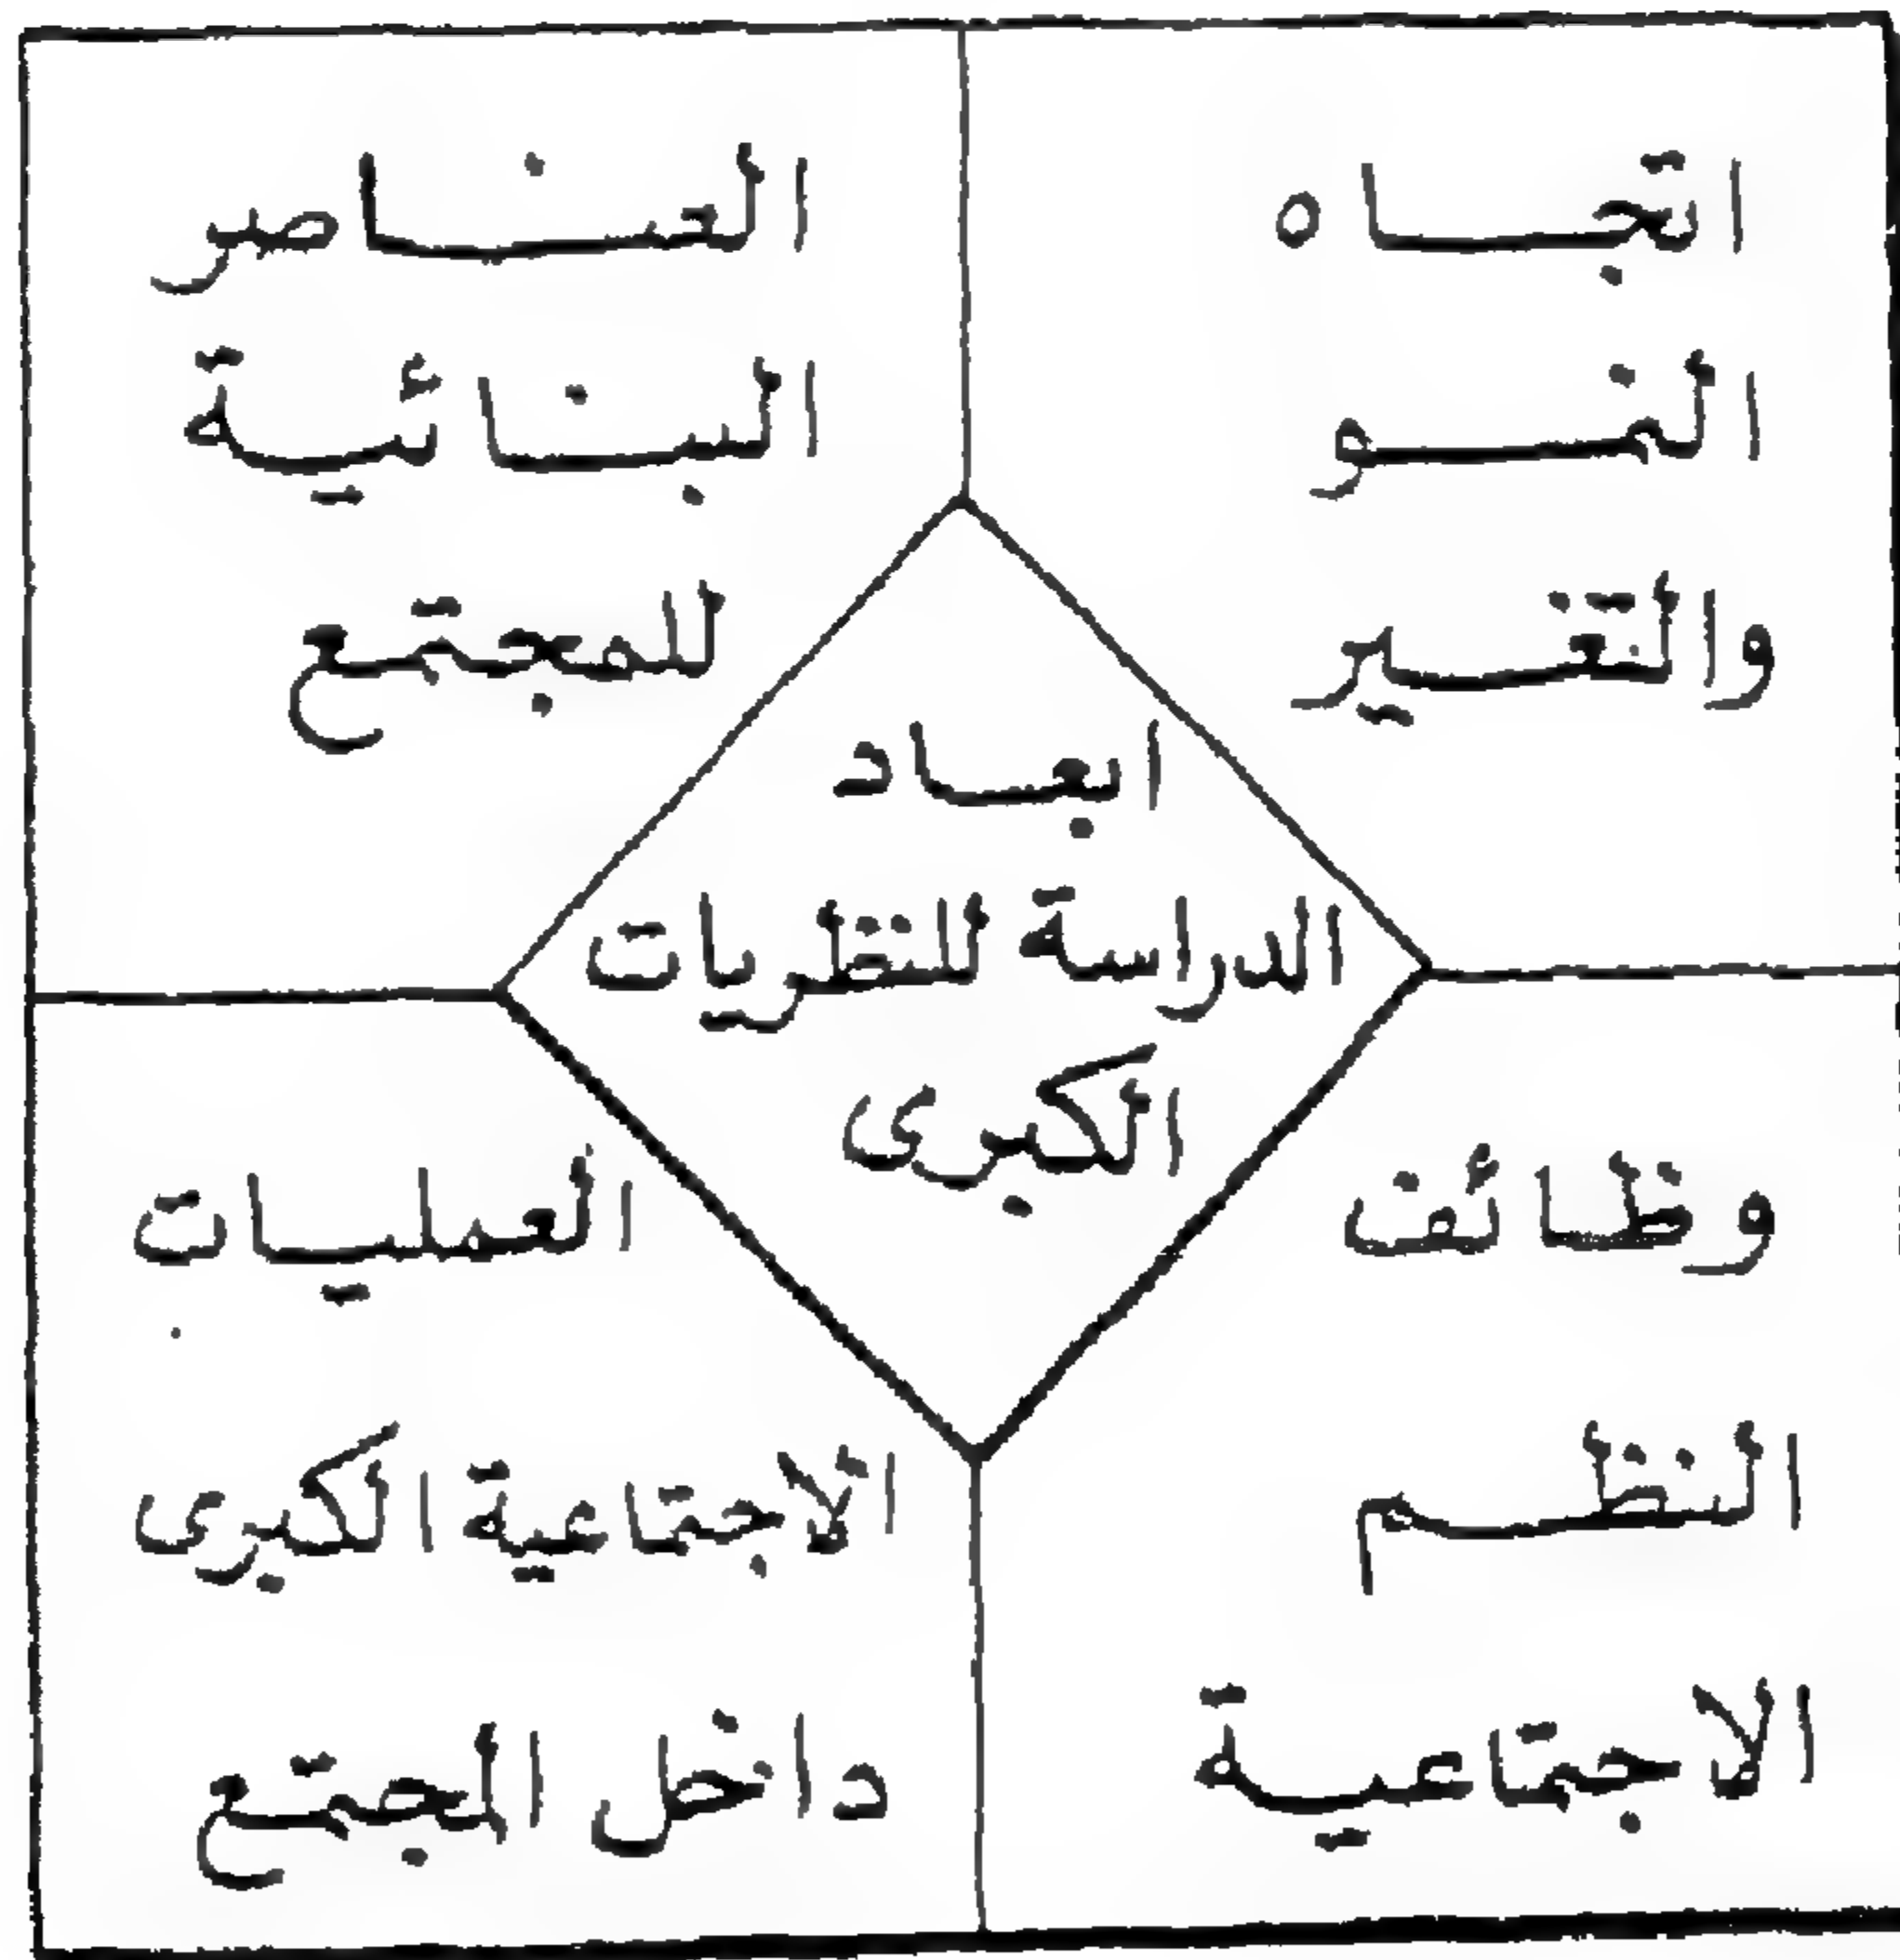 اتجاه
النمو
والتغير
العناصر
البنائية
للمجتمع
ابعاد
الدراسة للنظريات
الكبرى
وظائف
النظم
الاجتماعية
العمليات
الاجتماعية الكبرى
داخل المجتمع